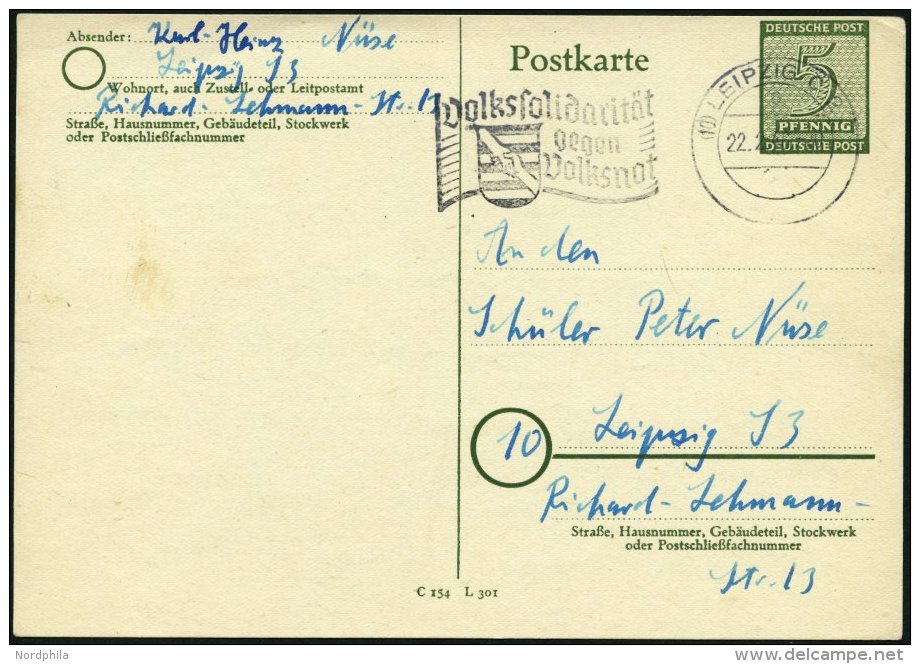 Absender: Karl-Heinz Nüse
Leipzig S 3
Wohnort, auch Zustell- oder Leitpostamt
Richard-Lehmann-Str. 13
Straße, Hausnummer, Gebäudeteil, Stockwerk
oder Postschließfachnummer
Postkarte
Volkssolidarität
gegen
Volksnot
(10) LEIPZIG
22.
DEUTSCHE POST
5
PFENNIG
DEUTSCHE POST
An den
Schüler Peter Nüse
10 Leipzig S 3
Richard-Lehmann-
Straße, Hausnummer, Gebäudeteil, Stockwerk
oder Postschließfachnummer
Str. 13
C 154 L 301
Nordphila
delcampe.net